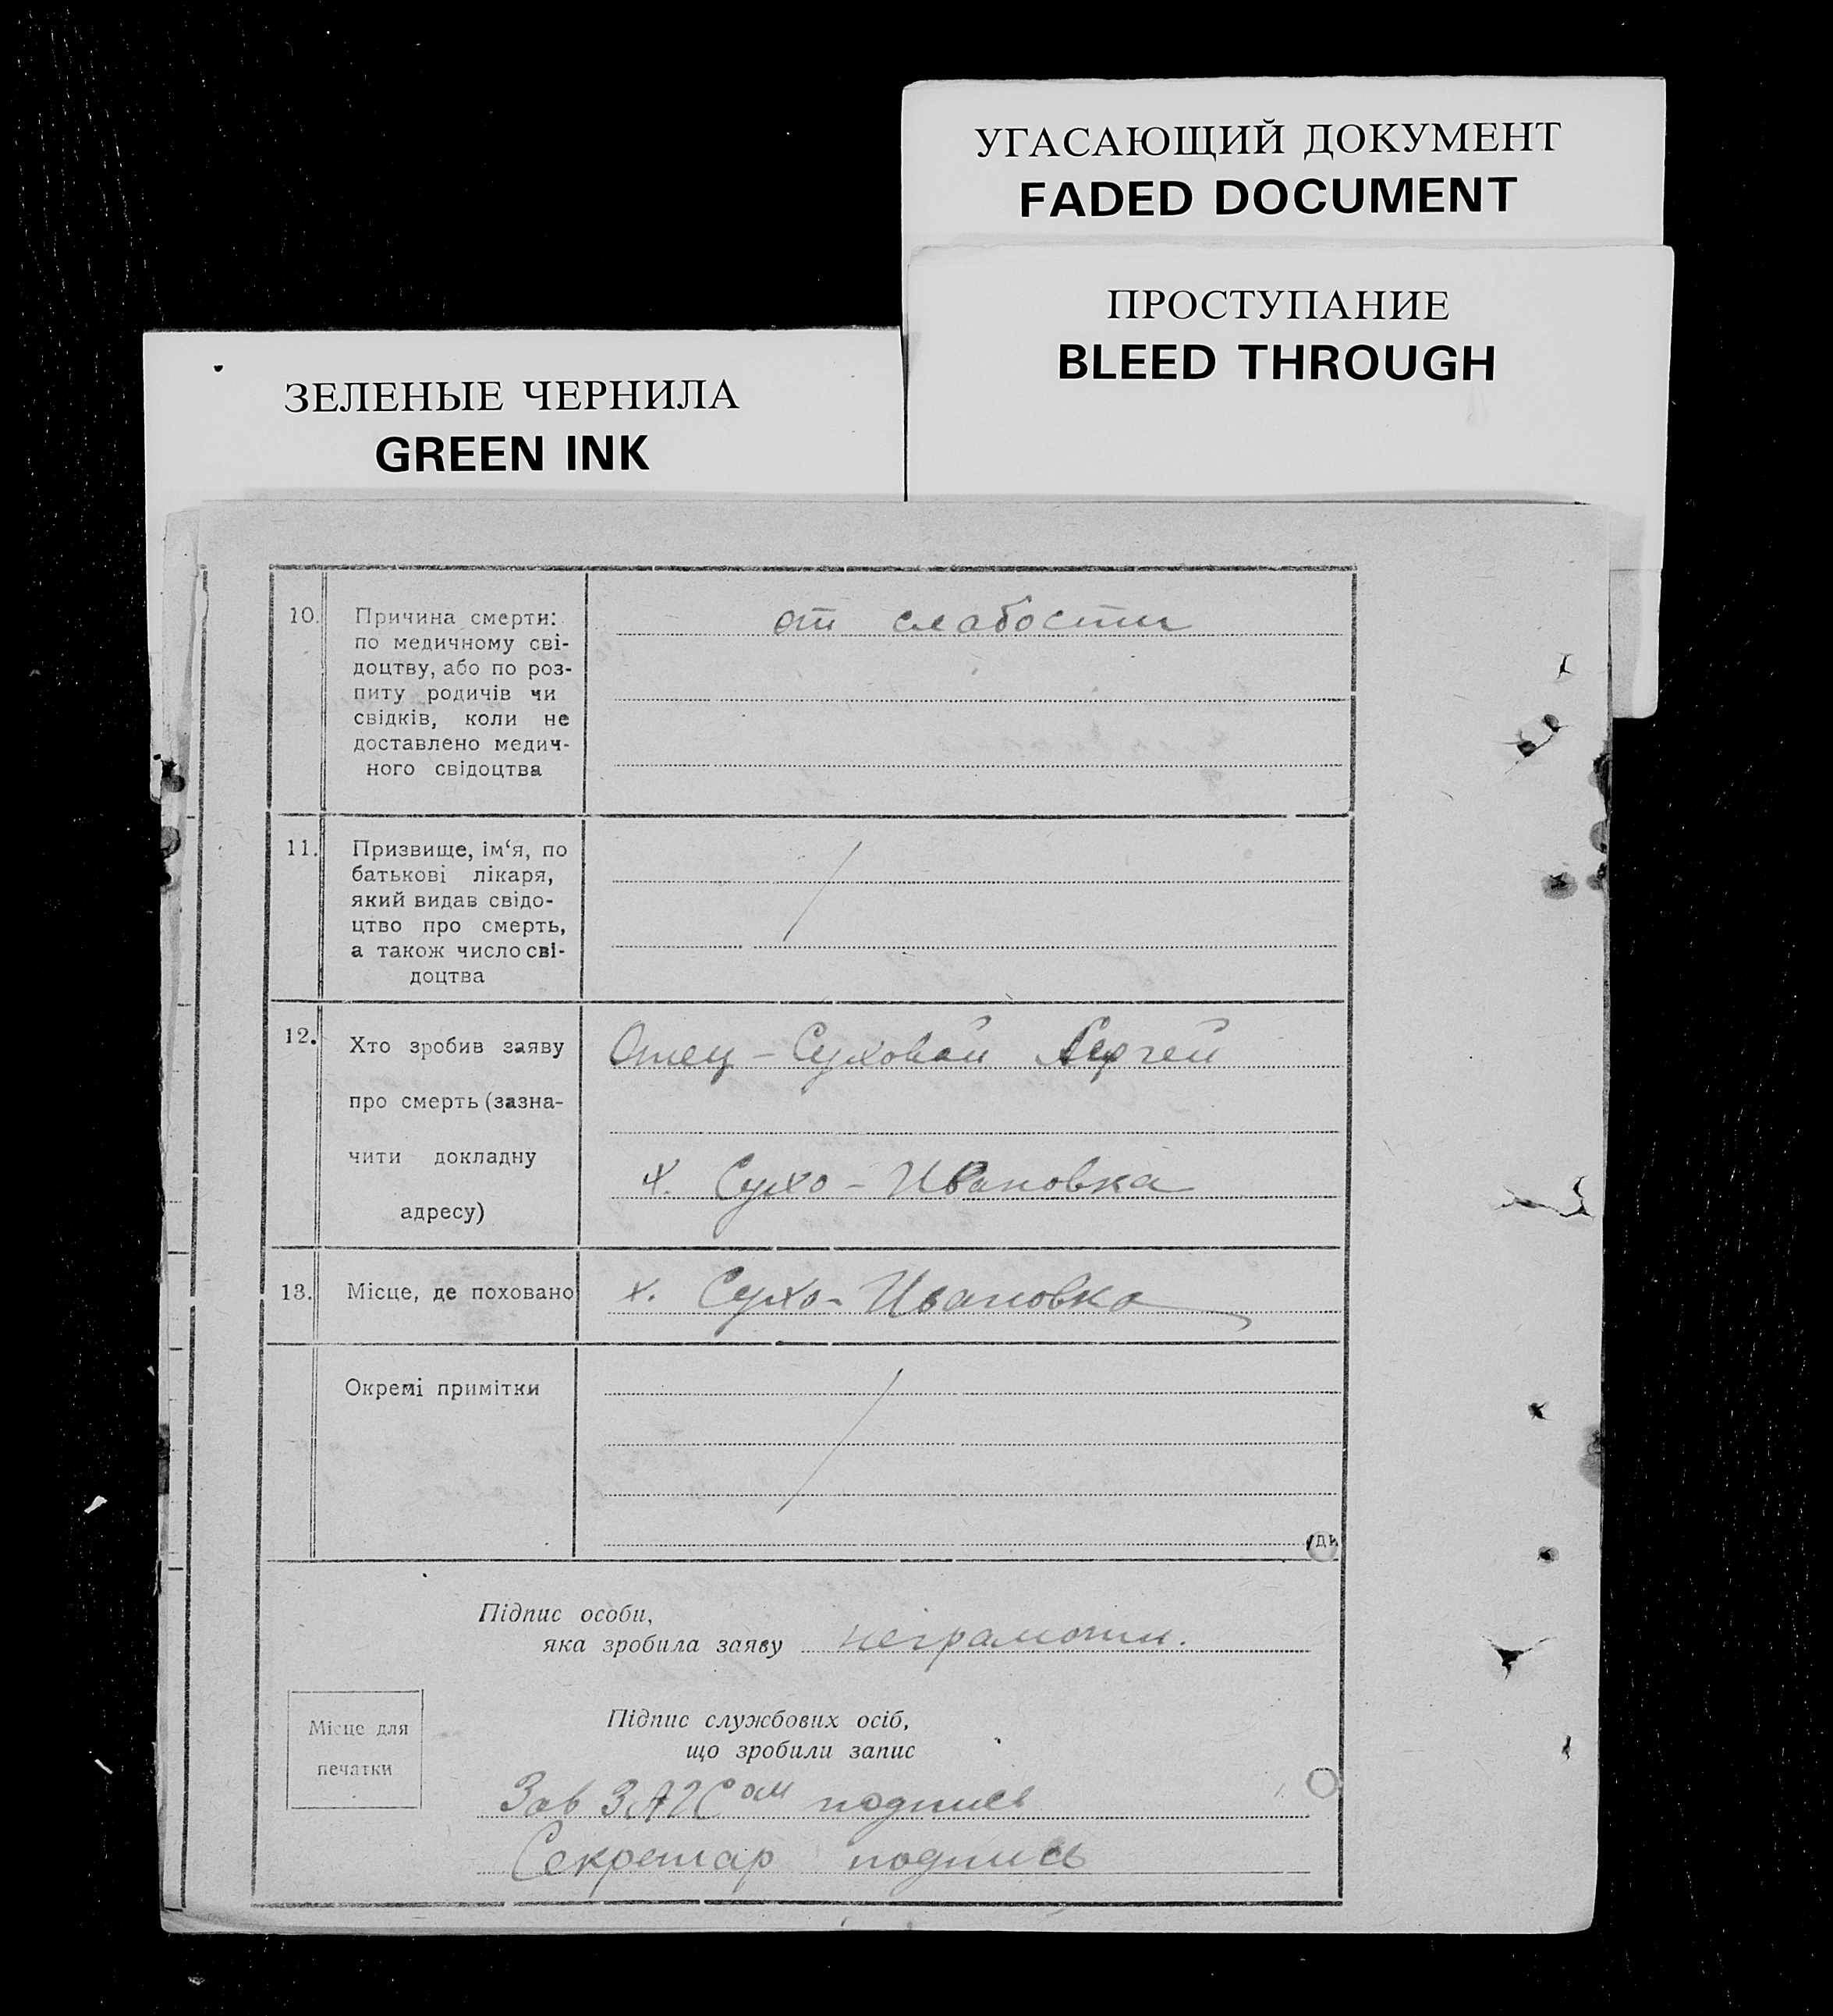 УГАСАЮЩИЙ ДОКУМЕНТ
FADED DOCUMENT
ПРОСТУПАНИЕ
BLEED THROUGH
ЗЕЛЕНЫЕ ЧЕРНИЛА
GREEN INK
10. Причина смерти: от слабости
по медичному сві-
доцтву, або по роз-
питу родичів чи
свідків, коли не
доставлено медич-
ного свідоцтва
11. Призвище, ім‘я, по
батькові лікаря,
який видав свідо-
цтво про смерть,
а також число сві-
доцтва
12. Хто зробив заяву Отец - Суховой Сергей
про смерть (зазна-
чити докладну х. Сухо - Ивановка
адресу)
13. Місце, де поховано х. Сухо - Ивановка
Окремі примітки
Підпис особи,
яка зробила заяву неграмотн.
Місце для
печатки
Підпис службових осіб,
що зробили запис
Зав ЗАГСом подпись
Секретар подпись